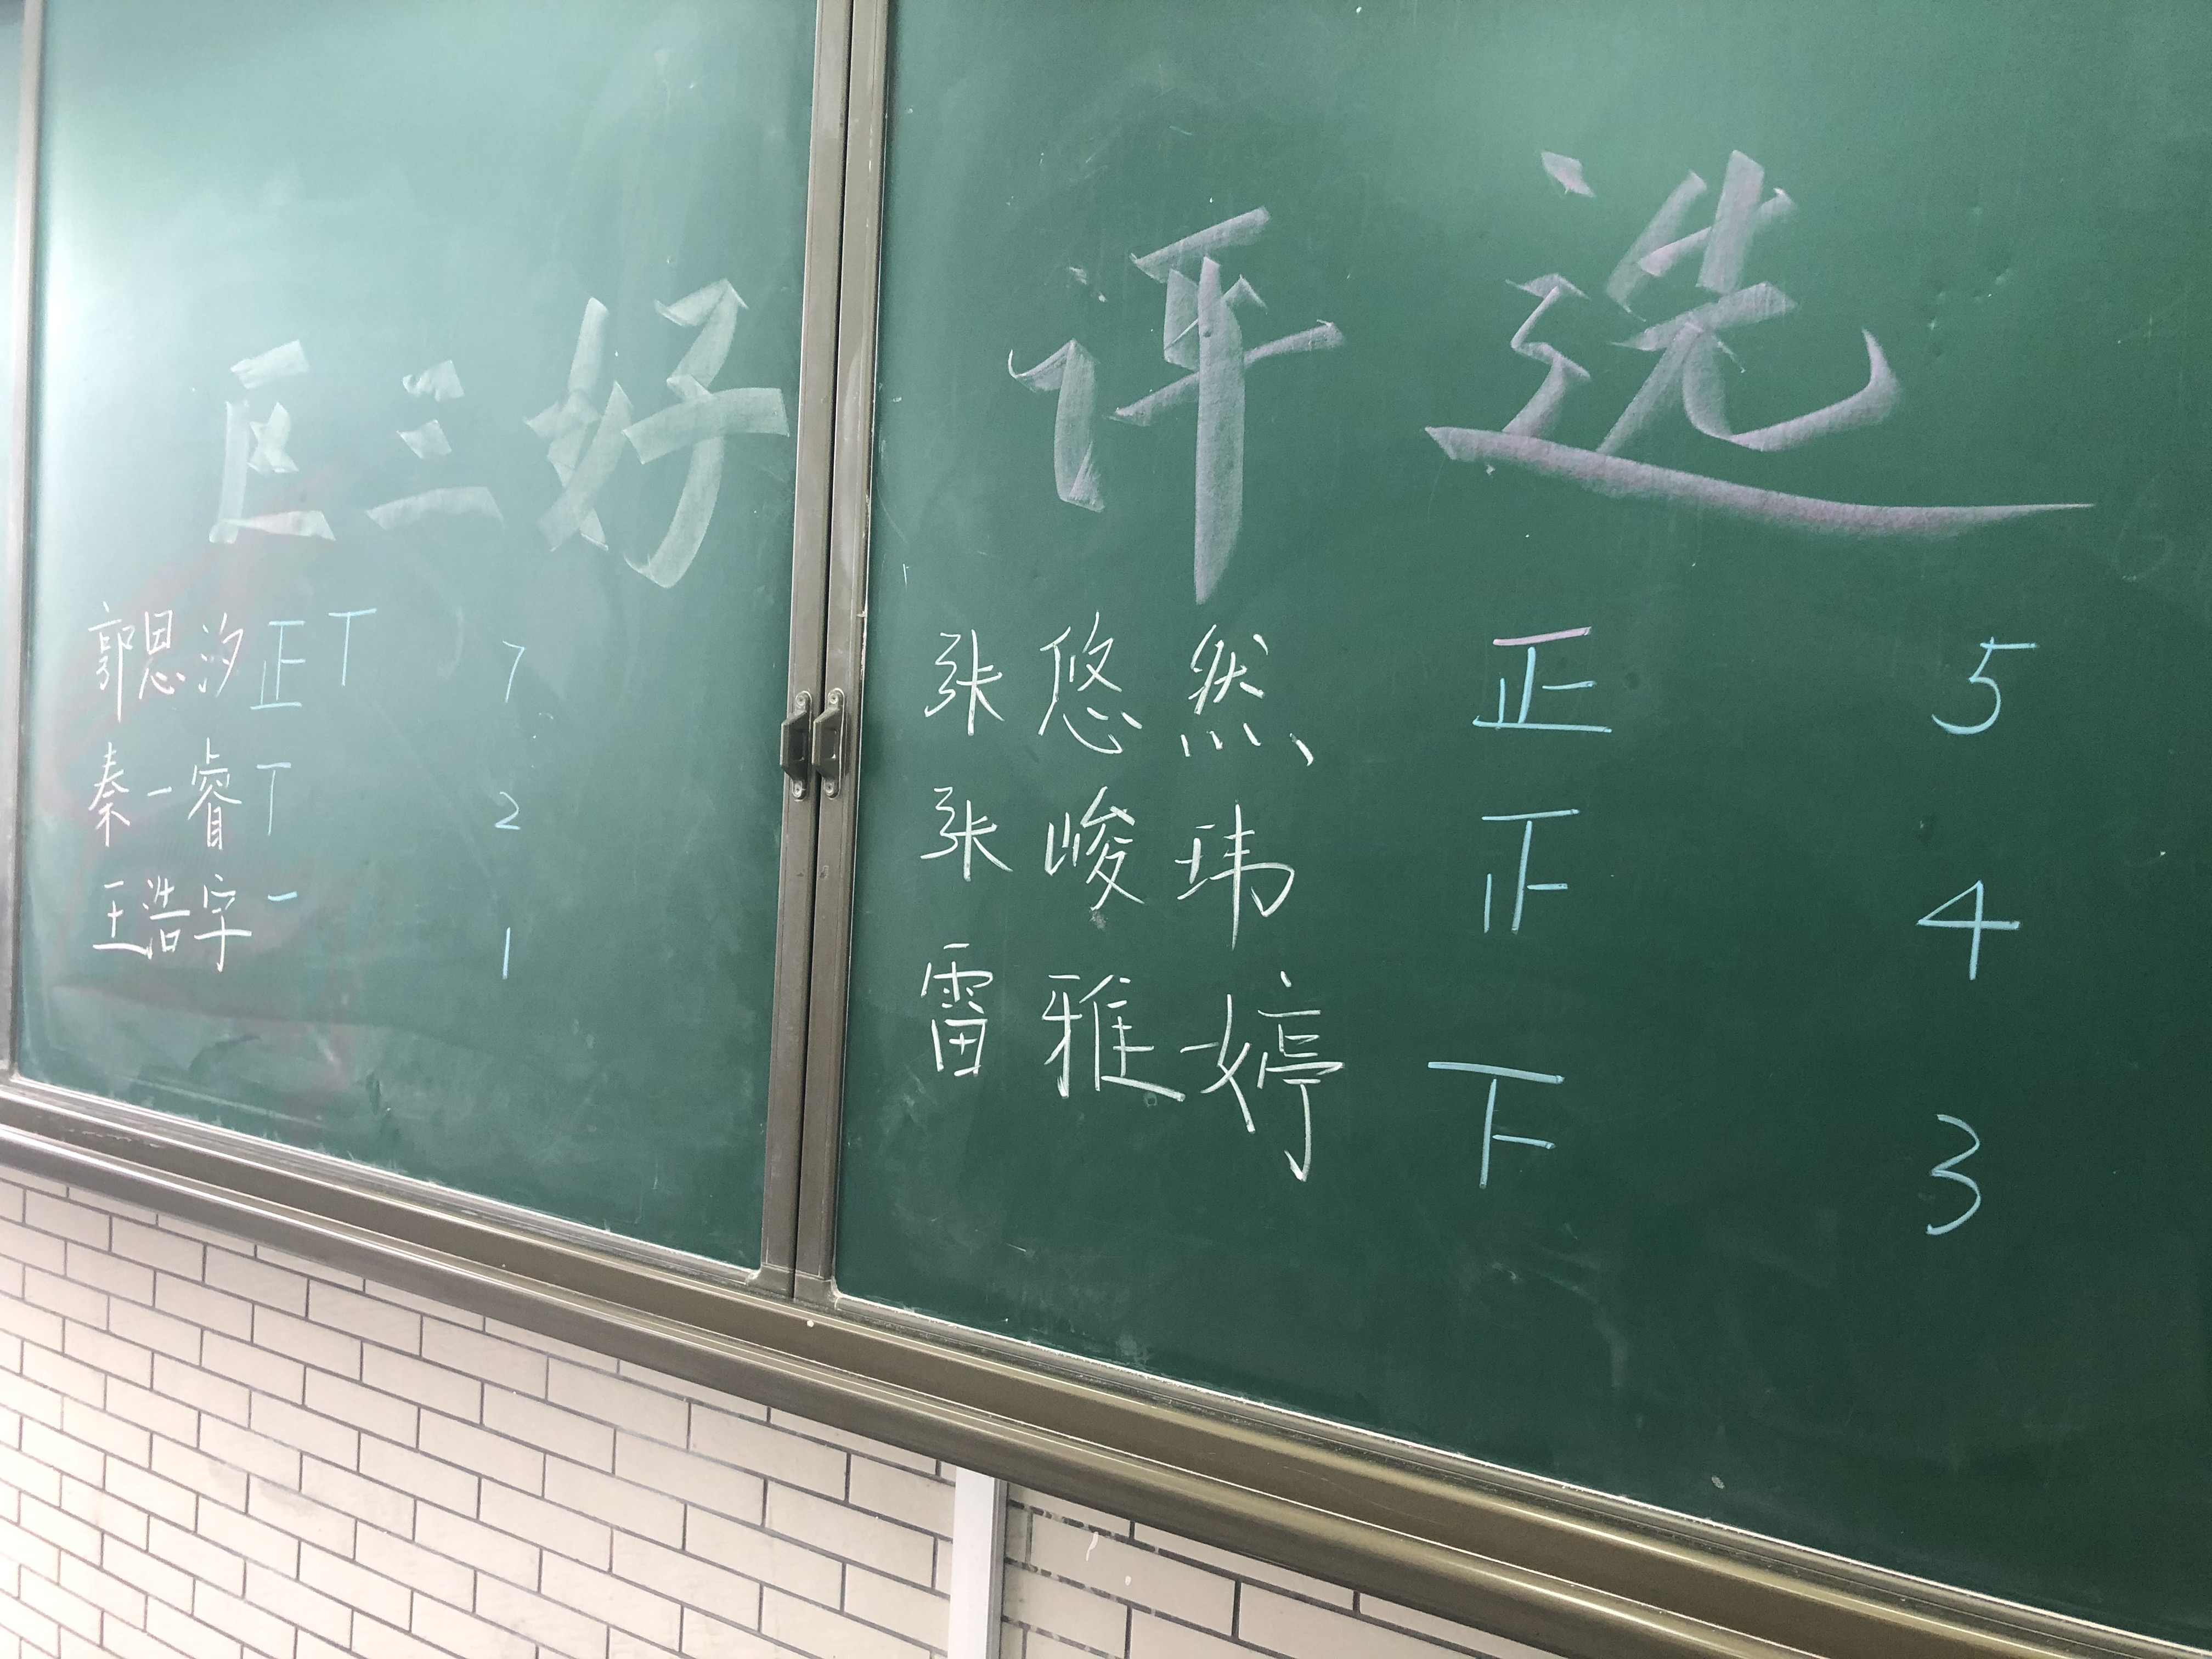 区三好评选
郭恩汐 正丅 7
秦一睿 丅 2
王浩宇 一 1
张悠然 正 5
张峻玮 4
雷雅婷 下 3